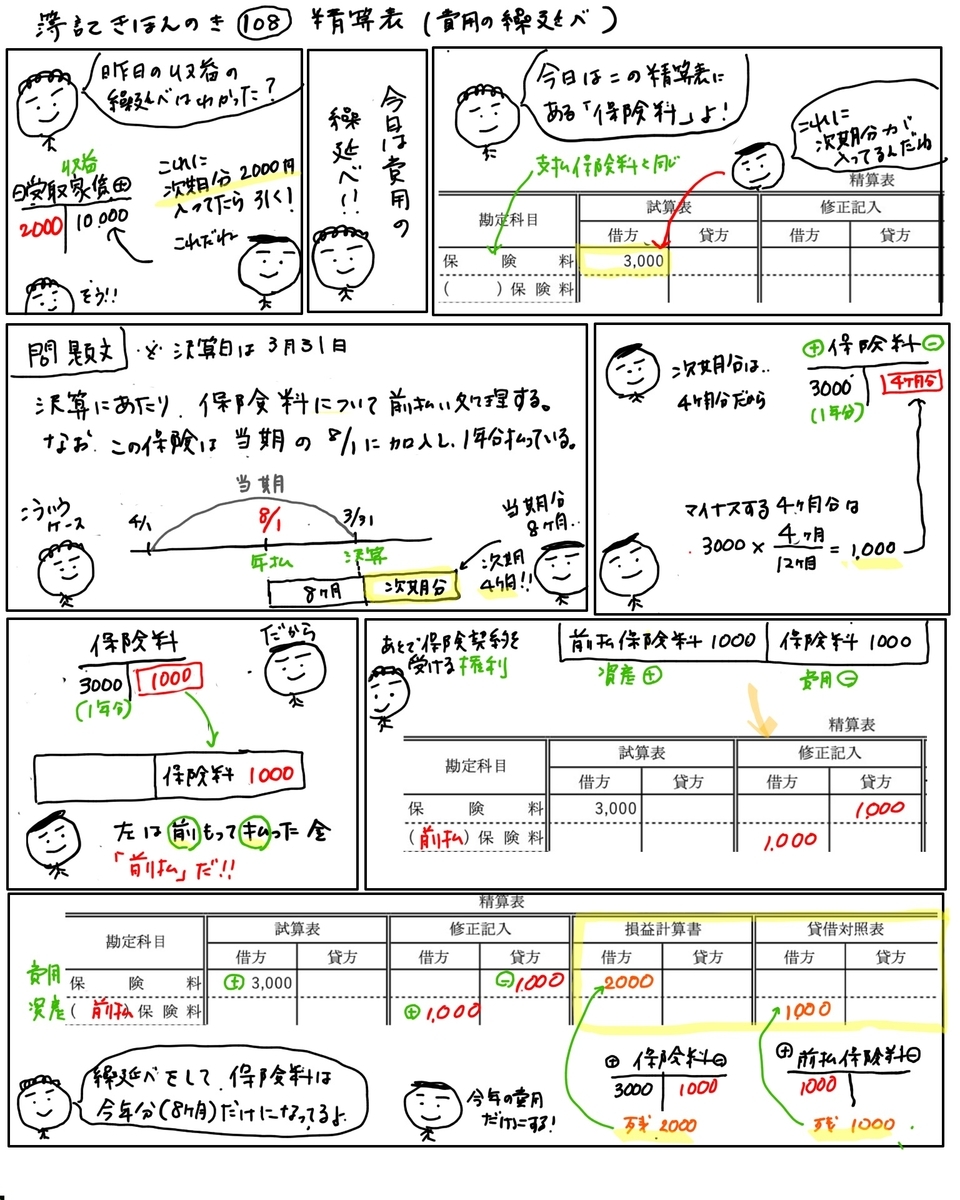 簿記きほんのき 108 精算表 (費用の繰延べ)
昨日の収益の
繰延べはわかった?
収益
⊖受取家賃⊕
2000 10.000
これに
次期分 2000円
入ってたら引く!
これだね
そう!!
今日は費用の
繰延べ!!
今日はこの精算表に
ある「保険料」よ!
これに
次期分が
入ってるんだね
支払保険料と同じ
精算表
勘定科目 試算表 修正記入
借方 貸方 借方 貸方
保険料 3,000
( )保険料
問題文 ※決算日は3月31日
決算にあたり、保険料について前払い処理する。
なお、この保険は当期の8/1に加入し、1年分払っている。
こういう
ケース
当期
4/1 8/1 3/31
年払 決算
8ヶ月 次期分
当期分
8ヶ月..
次期
4ヶ月!!
次期分は..
4ヶ月分だから
⊕保険料⊖
3000 4ヶ月分
(1年分)
マイナスする4ヶ月分は
3000 × 4ヶ月/12ヶ月 = 1,000
保険料
3000 1000
(1年分)
だから
保険料 1000
左は前もって払った金
「前払」だ!!
あとで保険契約を
受ける権利
前払保険料 1000 保険料 1000
資産⊕ 費用⊖
精算表
勘定科目 試算表 修正記入
借方 貸方 借方 貸方
保険料 3,000 1,000
(前払)保険料 1,000
精算表
勘定科目 試算表 修正記入 損益計算書 貸借対照表
借方 貸方 借方 貸方 借方 貸方 借方 貸方
費用 保険料 ⊕ 3,000 ⊖1,000 2000
資産 (前払保険料 ⊕1,000 1000
繰延べをして、保険料は
今年分(8ヶ月)だけになってるよ
今年の費用
だけにする!
⊕ 保険料⊖
3000 1000
残 2000
⊕前払保険料⊖
1000
残 1000